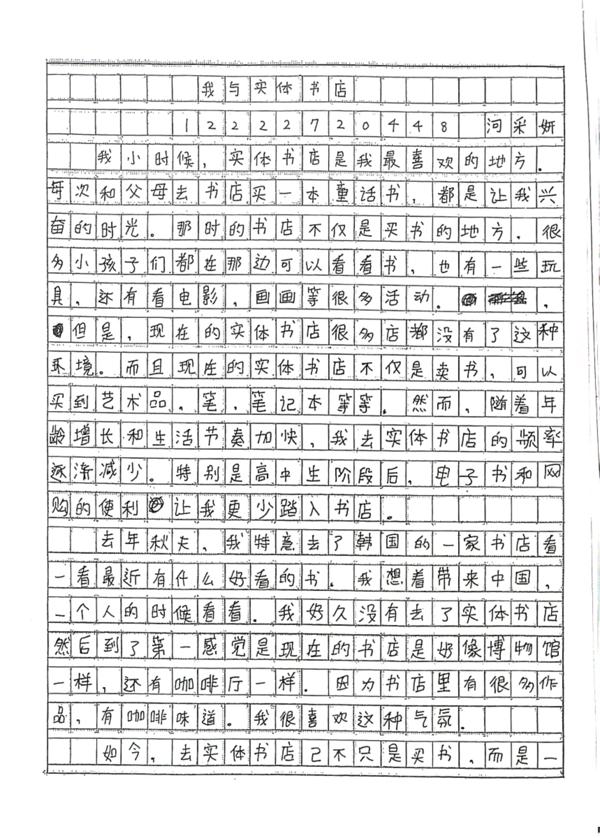 我与实体书店
12222720448 河采妍
我小时候，实体书店是我最喜欢的地方．
每次和父母去书店买一本童话书，都是让我兴
奋的时光．那时的书店不仅是买书的地方．很
多小孩子们都在那边可以看看书，也有一些玩
具，还有看电影，画画等很多活动．，
但是，现在的实体书店很多店都没有了这种
环境。而且现在的实体书店不仅是卖书，可以
买到艺术品，笔，笔记本等等．然而，随着年
龄增长和生活节奏加快，我去实体书店的频率
逐渐减少。特别是高中生阶段后，电子书和网
购的便利让我更少踏入书店。
去年秋天，我特意去了韩国的一家书店看
一看最近有什么好看的书．我想着带来中国，
一个人的时候看看．我好久没有去了实体书店
然后到了第一感觉是现在的书店是好像博物馆
一样，还有咖啡厅一样．因为书店里有很多作
品，有咖啡味道．我很喜欢这种气氛．
如今，去实体书店已不只是买书，而是一